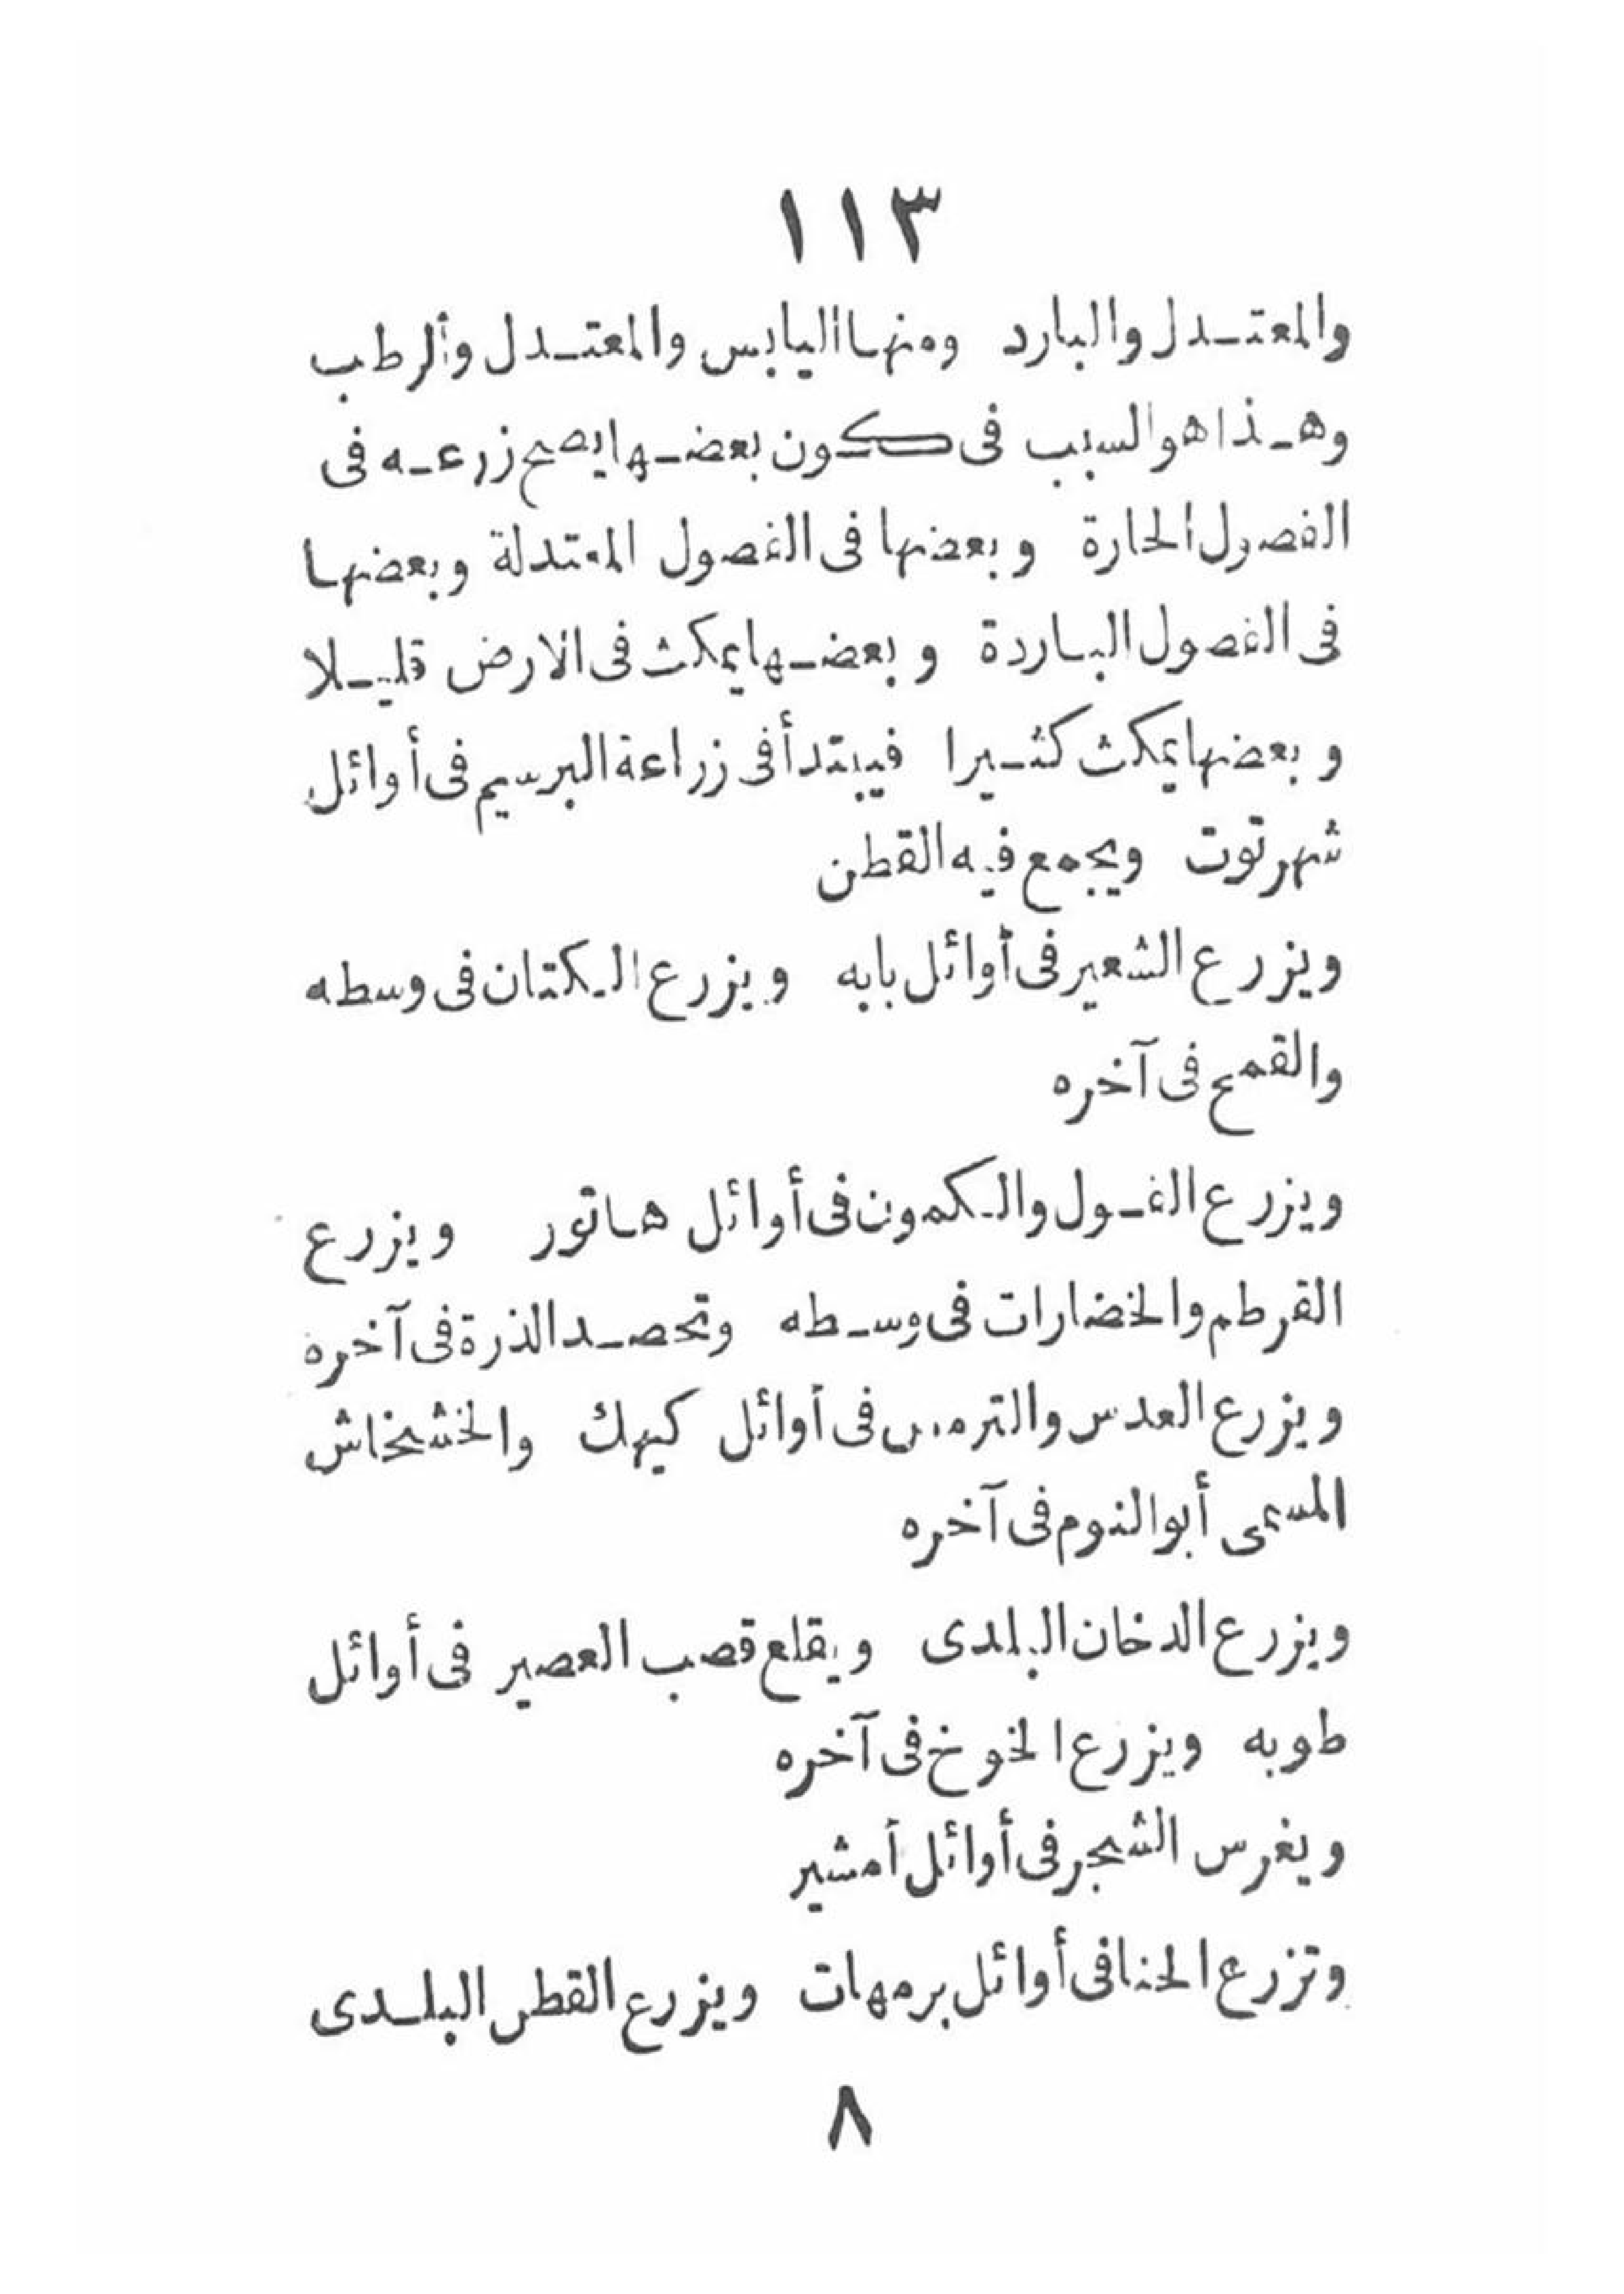 ١١٣
والمعتدل والبارد ومنها اليابس والمعتدل والرطب
وهذا هو السبب فى كون بعضها يصح زرعه فى
الفصول الحارة وبعضها فى الفصول المعتدلة وبعضها
فى الفصول الباردة وبعضها يمكث فى الارض قليلا
وبعضها يمكث كثيرا فيبتدأ فى زراعة البرسيم فى أوائل
شهر توت ويجمع فيه القطن
ويزرع الشعير فى أوائل بابه ويزرع الكتان فى وسطه
والقمح فى آخره
ويزرع الفول والكمون فى أوائل هاتور ويزرع
القرطم والخضارات فى وسطه وتحصد الذرة فى آخره
ويزرع العدس والترمس فى أوائل كيهك والخشخاش
المسمى أبو النوم فى آخره
ويزرع الدخان البلدى ويقلع قصب العصير فى أوائل
طوبه ويزرع الخوخ فى آخره
ويغرس الشجر فى أوائل أمشير
وتزرع الحنا فى أوائل برمهات ويزرع القطن البلدى
٨